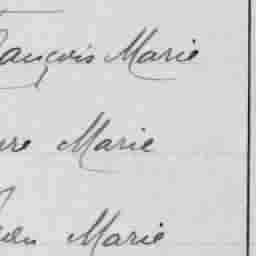 ançois Marie
re Marie
en Marie